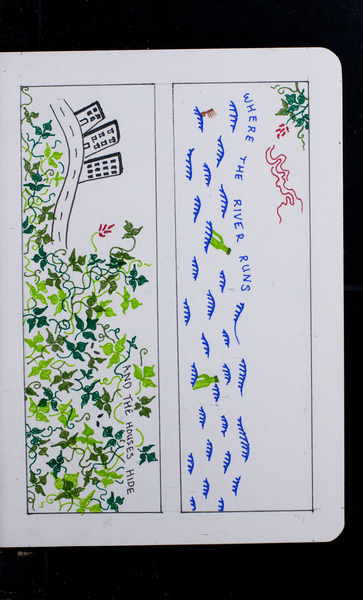 WHERE THE RIVER RUNS
AND THE HOUSES HIDE